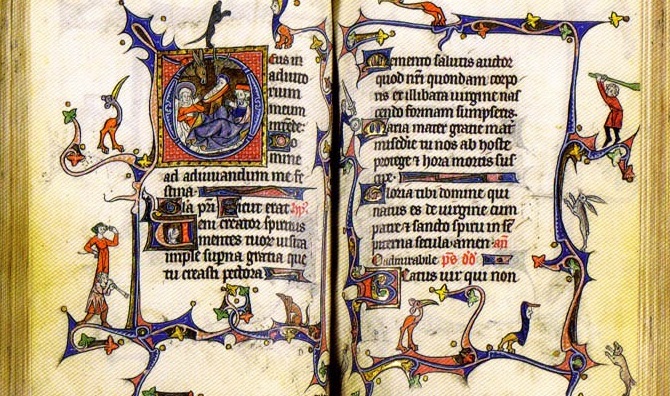 Deus in
adiuto
rium
meum
intende
Do
mine
ad adiuuandum me fe
stina
Gla pri Sicut erat
Veni creator spiritus
mentes tuor uisita
imple supna gratia que
tu creasti pectora
Memento salutis auctor
quod nri quondam corpo
ris ex illibata uirgine nas
cendo formam sumpseris
Maria mater gratie mat
misedie tu nos ab hoste
protege & hora mortis sus
cipe
Gloria tibi domine qui
natus es de uirgine cum
patre & sancto spiritu in se
piterna secula amen an
O admirabile ps dd
Beatus uir qui non